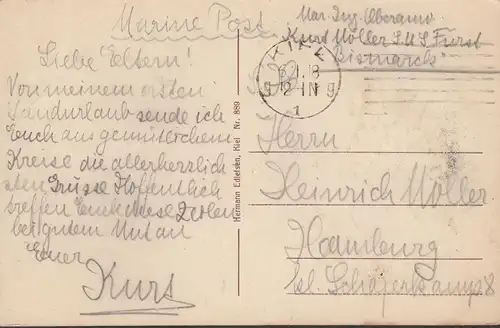 Marine Post
Mar. Ing. Oberanw.
Kurt Möller S.M.S Fürst
Bismarck
Liebe Eltern!
Von meinem ersten
Landurlaub sende ich
Euch aus gemütlichem
Kreise die allerherzlich
sten Grüsse Hoffentlich
treffen Euch diese Zeilen
bei gutem Mut an
Euer
Kurt
KIEL
1.18
9-12 N
1
Hermann Edlefsen, Kiel Nr. 889
Herrn
Heinrich Möller
Hamburg
kl. Schäferkamp 8